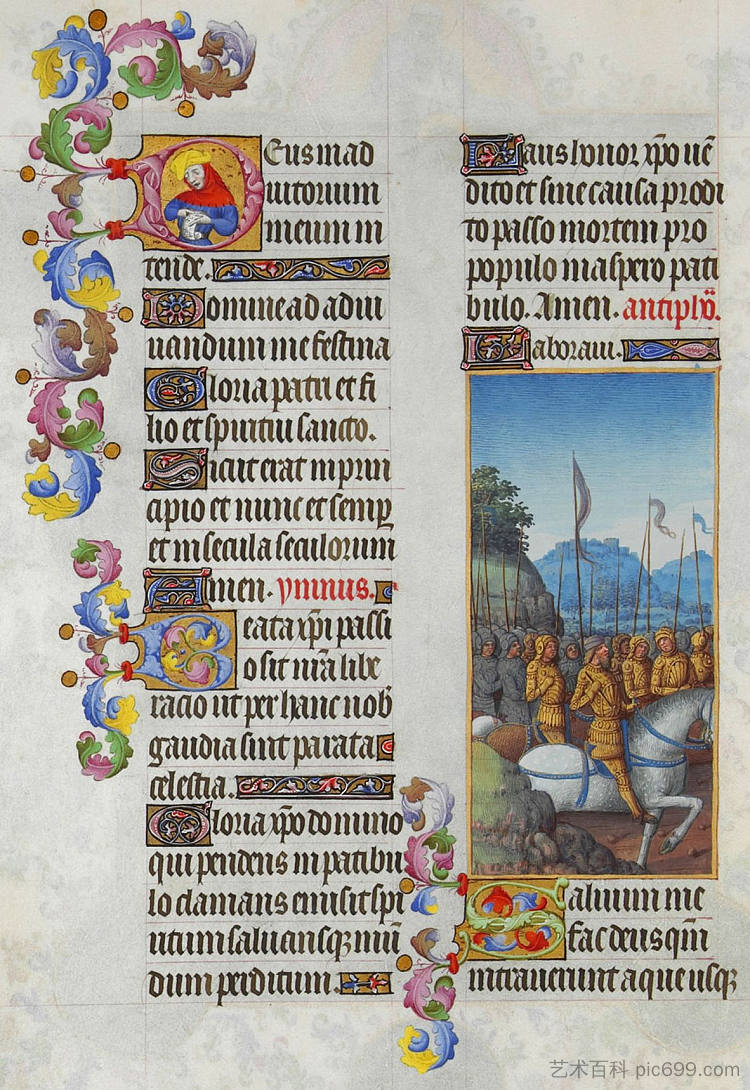 Deus in ad
iutorium
meum in
tende.
Domine ad adiu
uandum me festina
Gloria patri et fi
lio et spiritui sancto.
Sicut erat in prin
cipio et nunc et semp
et in secula seculorum
Amen. ymnus.
Beata xpi passi
o sit nra libe
racio ut per hanc nob
gaudia sint parata
celestia.
Gloria xpo domino
qui pendens in patibu
lo clamans emisit spi
ritum saluansq mun
dum perditum.
Laus honor xpo uen
dito et sine causa prodi
to passo mortem pro
populo in aspero pati
bulo. Amen. antiph.
Laboraui.
Saluum me
fac deus qm
intrauerunt aque usq
艺术百科 pic699.com